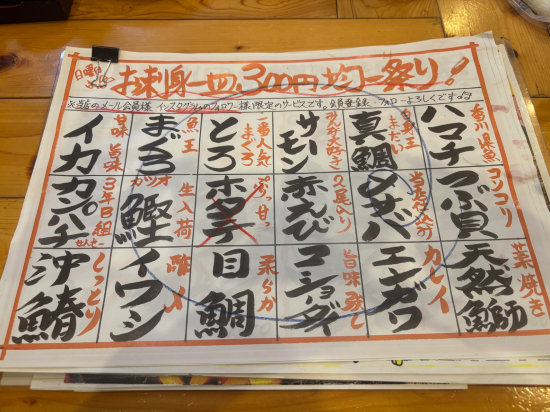 日曜日
お刺身一切300円均一祭り!
※当店のメール会員様 インスタグラムのフォロワー様限定のサービスです。会員登録・フォローよろしくです
香川県魚
ハマチ
白身王
まだい
真鯛
みんな大好き
サーモン
一番人気
まぐろ
とろ
魚王
まぐろ
甘味
旨味
イカ
コリコリ
つぶ貝
当店仕込み
〆サバ
2尾入り
赤えび
ぷりっ甘っ
ホタテ
生入荷
カツオ
鰹
3年B組
せんせー
カンパチ
藁焼き
天然鰤
カレイ
エンガワ
旨味濃し
コショウダイ
柔らか
目鯛
イワシ
しっとり
沖鰆